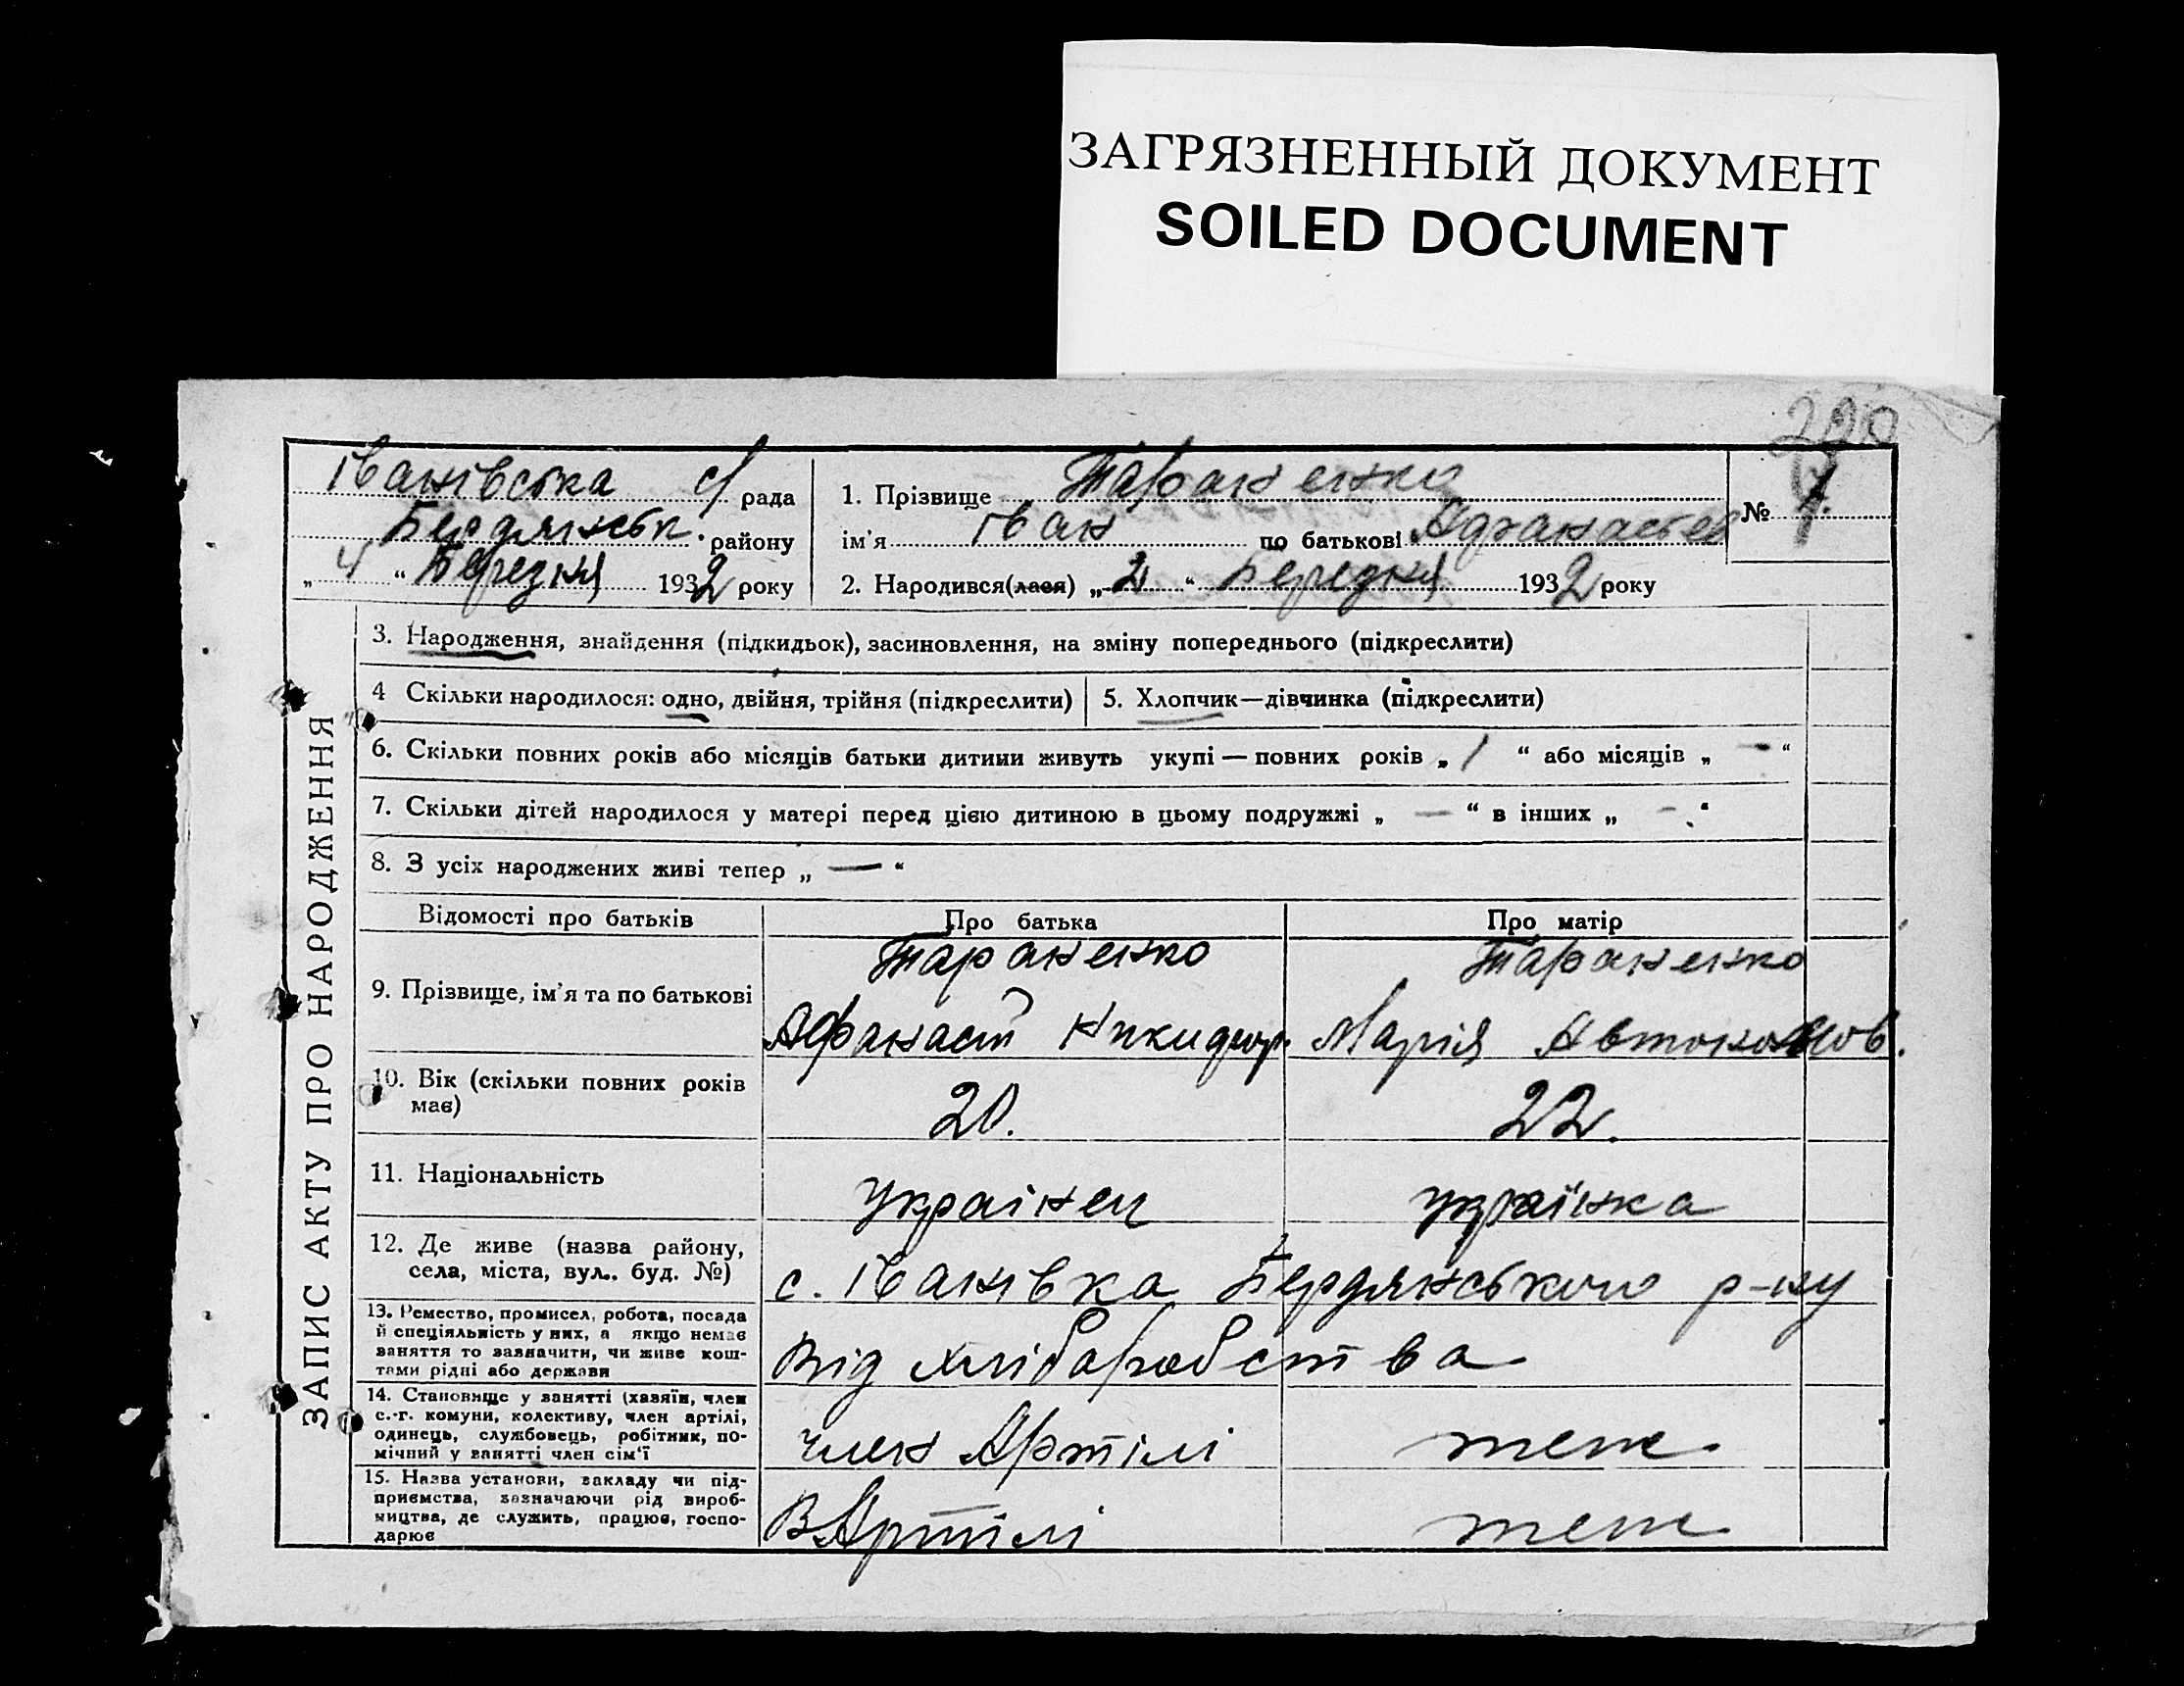 ЗАГРЯЗНЕННЫЙ ДОКУМЕНТ
SOILED DOCUMENT
220
Іванівська с/ рада
Бердянськ. району
„ 4 “ Березня 1932 року
1. Прізвище Тараненко
ім'я Іван по батькові Афанасьев
№ 7.
2. Народився(лася) „ 2 “ Березня 1932 року
ЗАПИС АКТУ ПРО НАРОДЖЕННЯ
3. Народження, знайдення (підкидьок), засиновлення, на зміну попереднього (підкреслити)
4 Скільки народилося: одно, двійня, трійня (підкреслити)
5. Хлопчик—дівчинка (підкреслити)
6. Скільки повних років або місяців батьки дитини живуть укупі — повних років „ 1 “ або місяців „ — “
7. Скільки дітей народилося у матері перед цією дитиною в цьому подружжі „ — “ в інших „ — “
8. З усіх народжених живі тепер „ — “
Відомості про батьків
Про батька
Про матір
9. Прізвище, ім'я та по батькові
Тараненко
Афанасій Никифор.
Тараненко
Марія Автономов.
10. Вік (скільки повних років
має)
20.
22.
11. Національність
Українец
українка
12. Де живе (назва району,
села, міста, вул.. буд. №)
с. Іванівка Бердянського р-ну
13. Ремество, промисел, робота, посада
й спеціяльність у них, а якщо немає
заняття то зазначити, чи живе кош-
тами рідні або держави
Від хліборобства
14. Становище у занятті (хазяїн, член
с.-г. комуни, колективу, член артілі,
одинець, службовець, робітник, по-
мічний у занятті член сім'ї
член Артілі
теж.
15. Назва установи, закладу чи під-
приємства, зазначаючи рід вироб-
ництва, де служить, працює, госпо-
дарює
В Артілі
теж